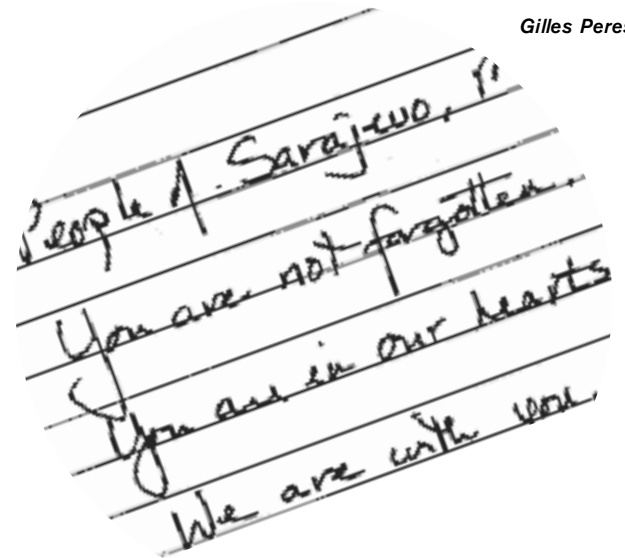 Gilles Peres
People of Sarajevo,
You are not forgotten.
You are in our hearts
We are with you.